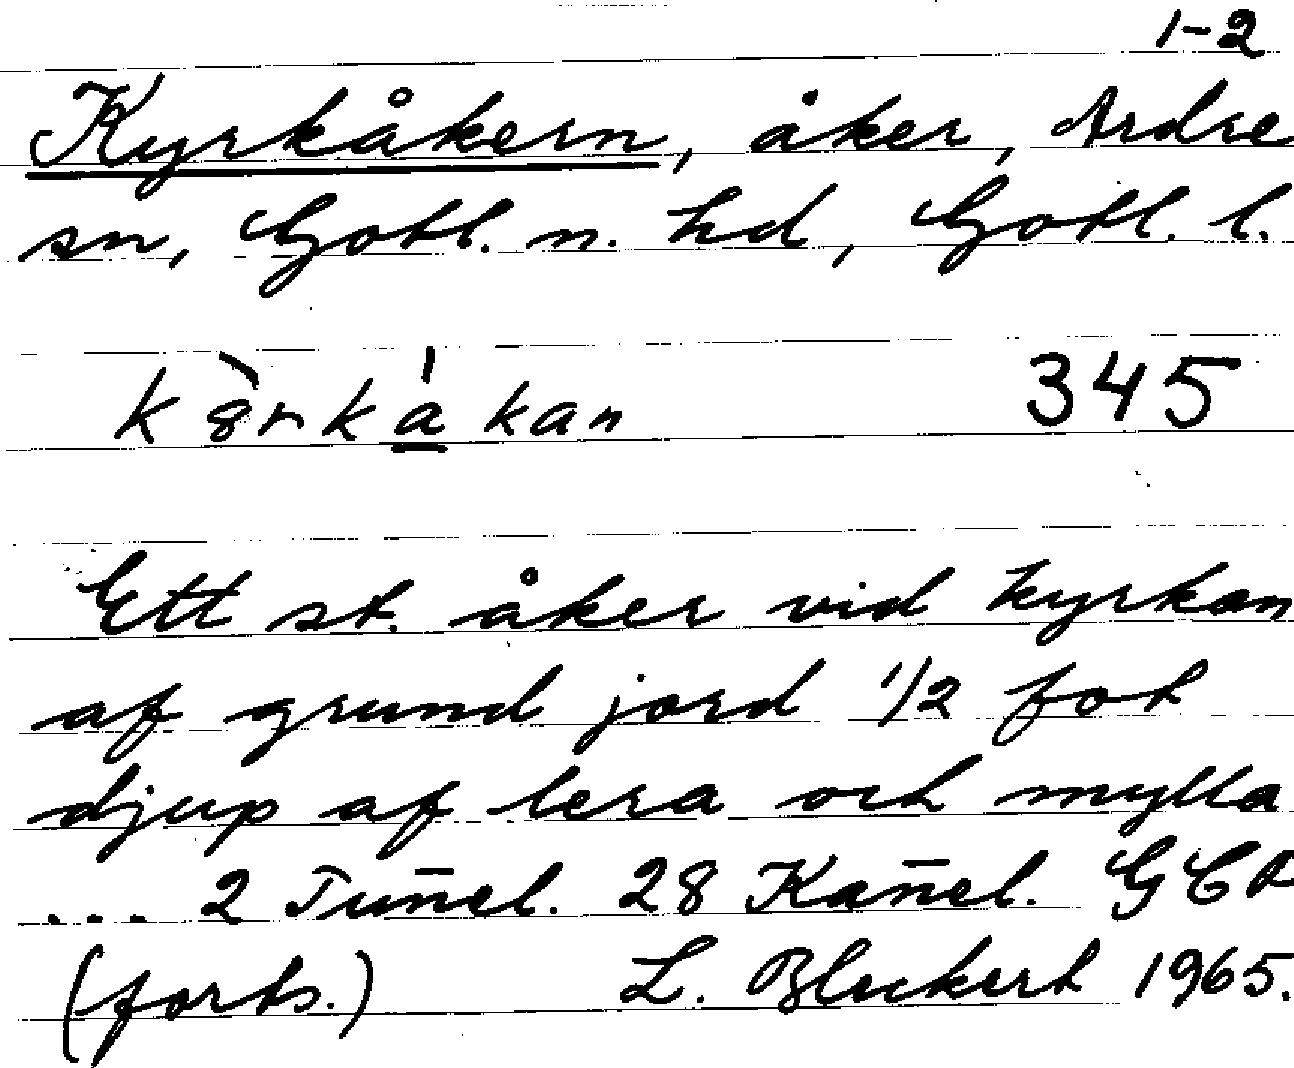 1-2
Kyrkåkern, åker, Ardre
sn, Gotl. n. hd, Gotl. l.
345
Ett st. åker vid kyrkan
af grund jord 1/2 fot
djup af lera och mylla
... 2 Tun̄el. 28 Kan̄el. GCA
(forts.) L. Bleckert 1965.